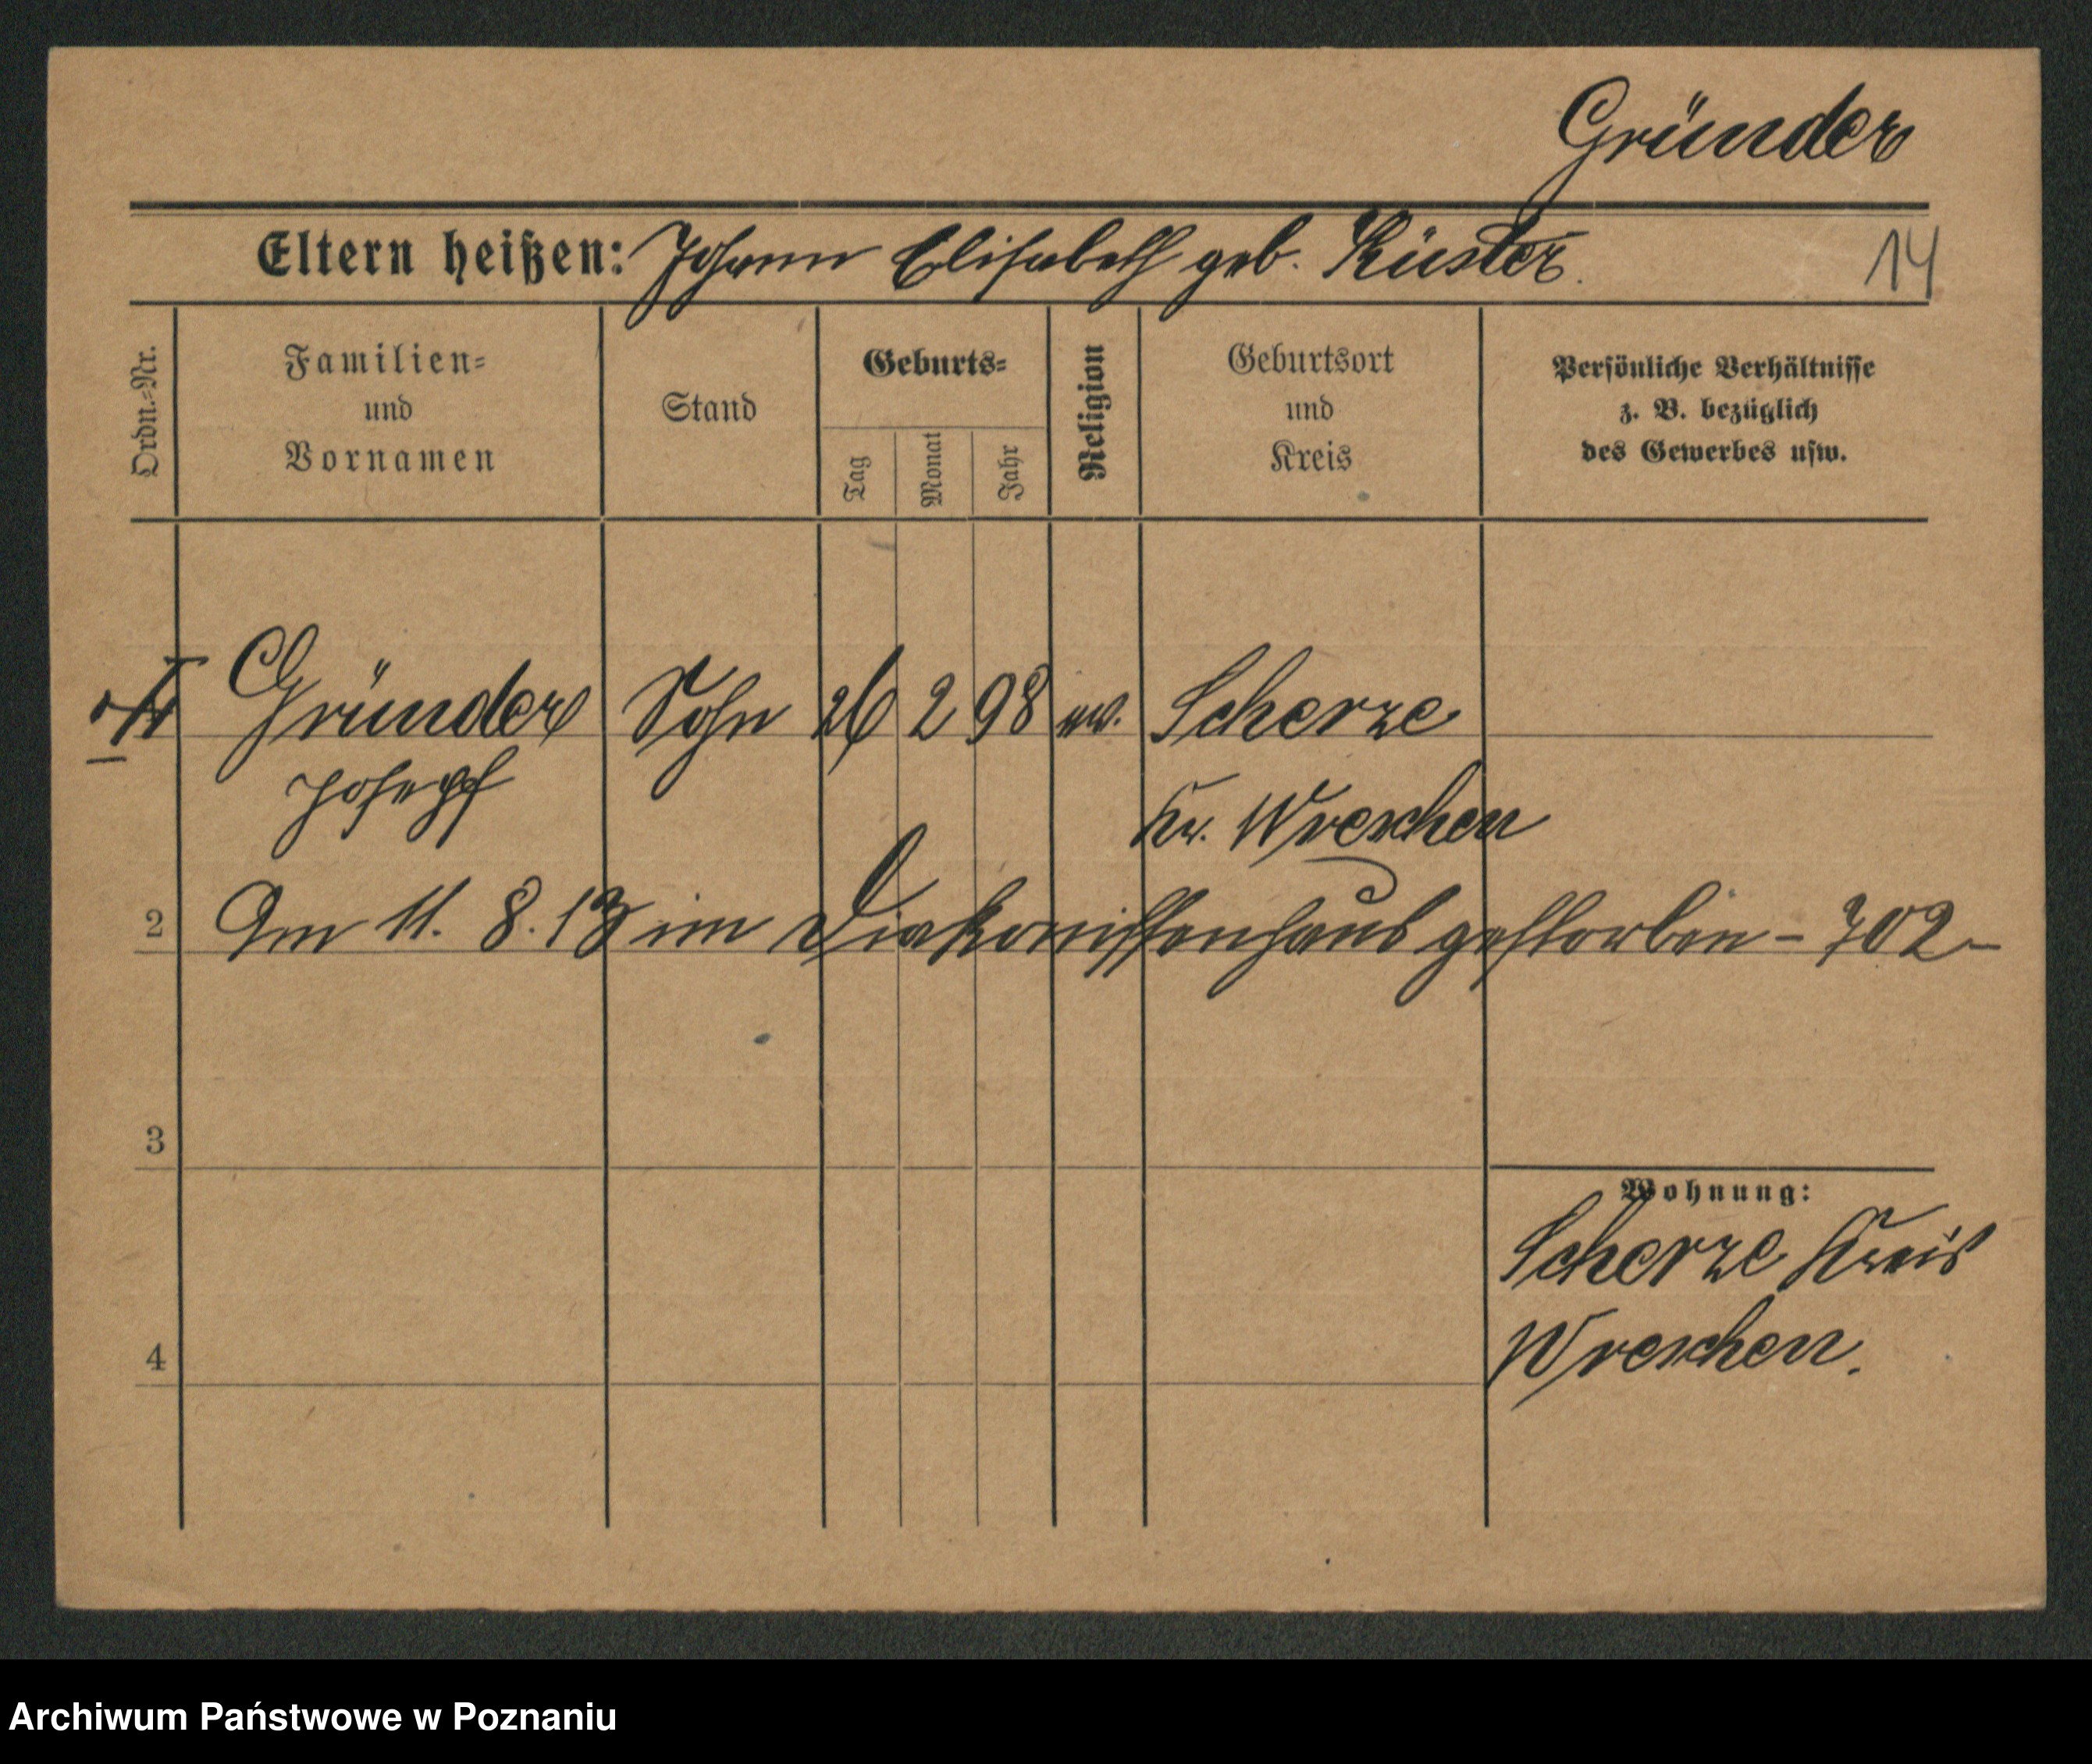 Gründer
Eltern heißen: Johann Elisabeth geb. Küster.
14
Ordn.-Nr.
Familien-
und
Vornamen
Stand
Geburts-
Tag
Monat
Jahr
Religion
Geburtsort
und
Kreis
Persönliche Verhältnisse
z. B. bezüglich
des Gewerbes usw.
Gründer Sohn 26 2 98 ev. Scherze
Joseph Kr. Wreschen
2 Am 11. 8. 13 im Diakonissenhaus gestorben - 702 -
3
Wohnung:
Scherze Kreis
4 Wreschen.
Archiwum Państwowe w Poznaniu